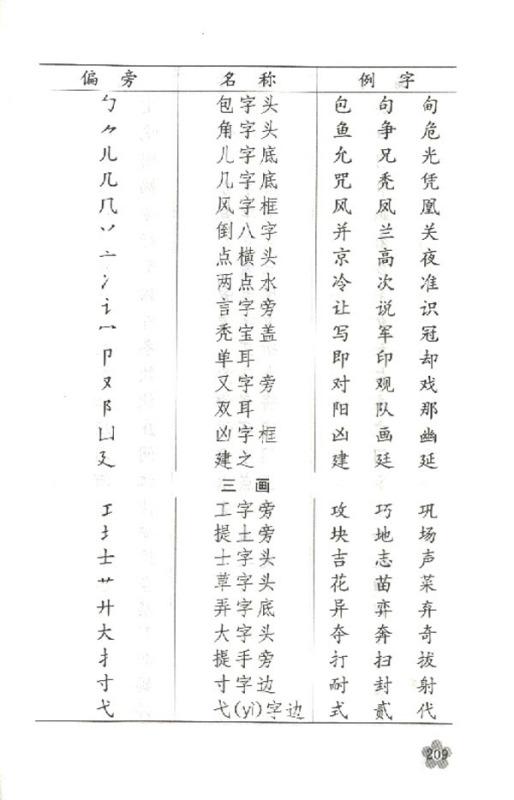 偏旁 名称 例字
勹 包字头 包 句 甸
⺈ 角字头 鱼 争 危
儿 儿字底 允 兄 光
几 几字底 咒 秃 凭
𠘨 风字框 风 凤 凰
丷 倒八字 并 兰 关
亠 点横头 京 高 夜
冫 两点水 冷 次 准
讠 言字旁 让 说 识
冖 秃宝盖 写 军 冠
卩 单耳字 即 印 却
又 又字旁 对 观 戏
阝 双耳 阳 队 那
凵 凶字框 凶 画 幽
廴 建字之 建 廷 延
三画
工 工字旁 攻 巧 巩
土 提土旁 块 地 场
士 士字头 吉 志 声
艹 草字头 花 苗 菜
廾 弄字底 异 弈 弃
大 大字头 夺 奔 奇
扌 提手旁 打 扫 拔
寸 寸字边 耐 封 射
弋 弋(yì)字边 式 贰 代
209